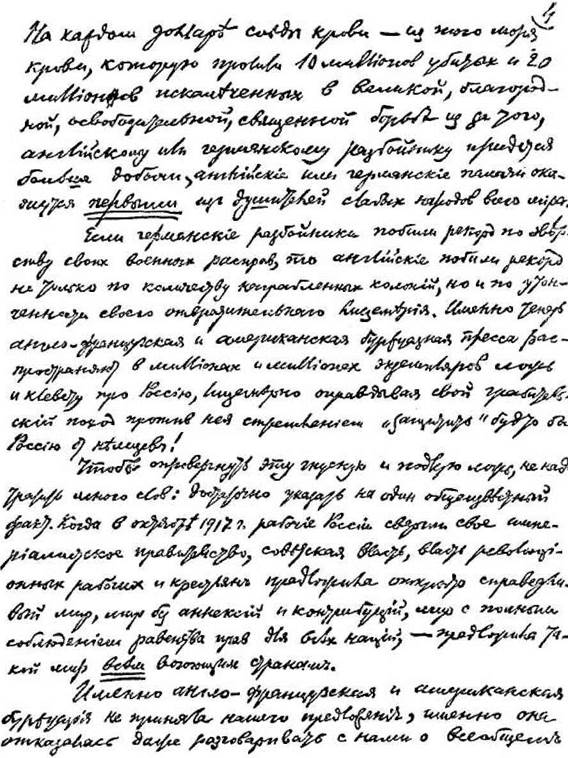 4
На каждом долларѣ слѣды крови — из того моря
крови, которую пролили 10 миллионов убитых и 20
миллионов искалѣченных в великой, благород-
ной, освободительной, священной борьбѣ из за того,
английскому или германскому разбойнику придется
больше добычи, английскіе или германскіе палачи ока-
жутся первыми из душителей слабых народов всего мира.
Если германскіе разбойники побили рекорд по звѣр-
ству своих военных расправ, то английскіе побили рекорд
не только по количеству награбленных колоній, но и по утон-
ченности своего отвратительного лицемѣрія. Именно теперь
англо-французская и американская буржуазная пресса рас-
пространяют в миллионах и миллионах экземпляров ложь
и клевету про Россію, лицемѣрно оправдывая свой грабитель-
скій поход против нея стремленіем „защитить“ будто бы
Россію от нѣмцев!
Чтобы опровергнуть эту гнусную и подлую ложь, не надо
тратить много слов: достаточно указать на один общеизвѣстный
факт. Когда в октябрѣ 1917 г. рабочіе Россіи свергли свое импе-
ріалистское правительство, совѣтская власть, власть революці-
онных рабочих и крестьян предложила открыто справедли-
вый мир, мир без аннексій и контрибуцій, мир с полным
соблюденіем равенства прав для всѣх націй, — предложила та-
кой мир всѣм воюющим странам.
Именно англо-французская и американская
буржуазія не приняла нашего предложенія, именно она
отказалась даже разговаривать с нами о всеобщем